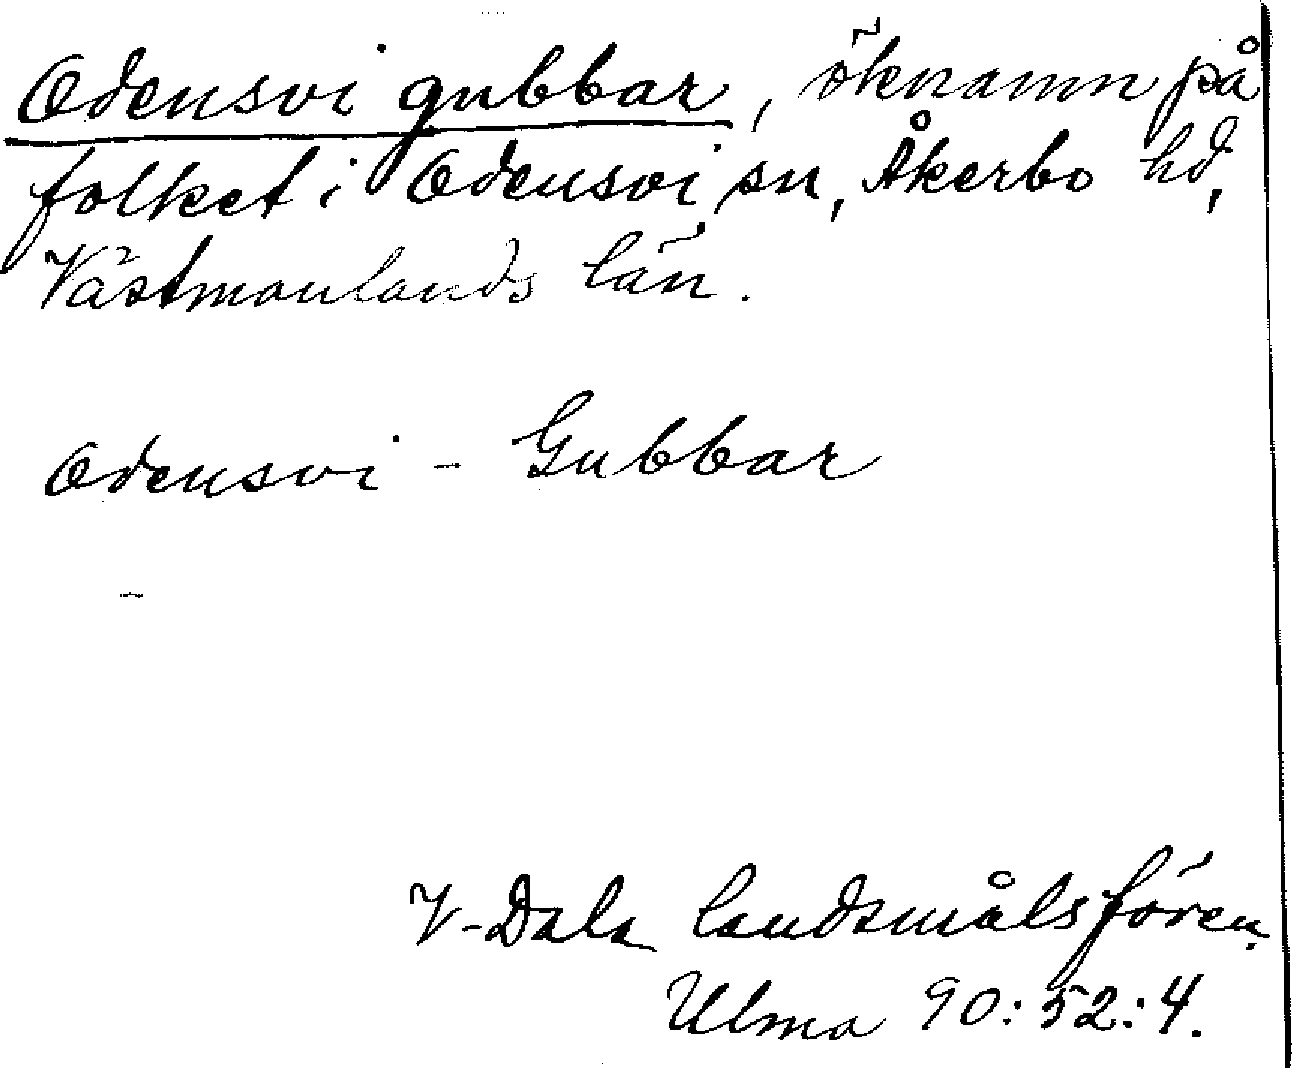 Odensvi gubbar, öknamn på
folket i Odensvi sn, Åkerbo hd,
Västmanlands län.
Odensvi - Gubbar
V-Dala landsmålsfören.
Ulma 90:52:4.